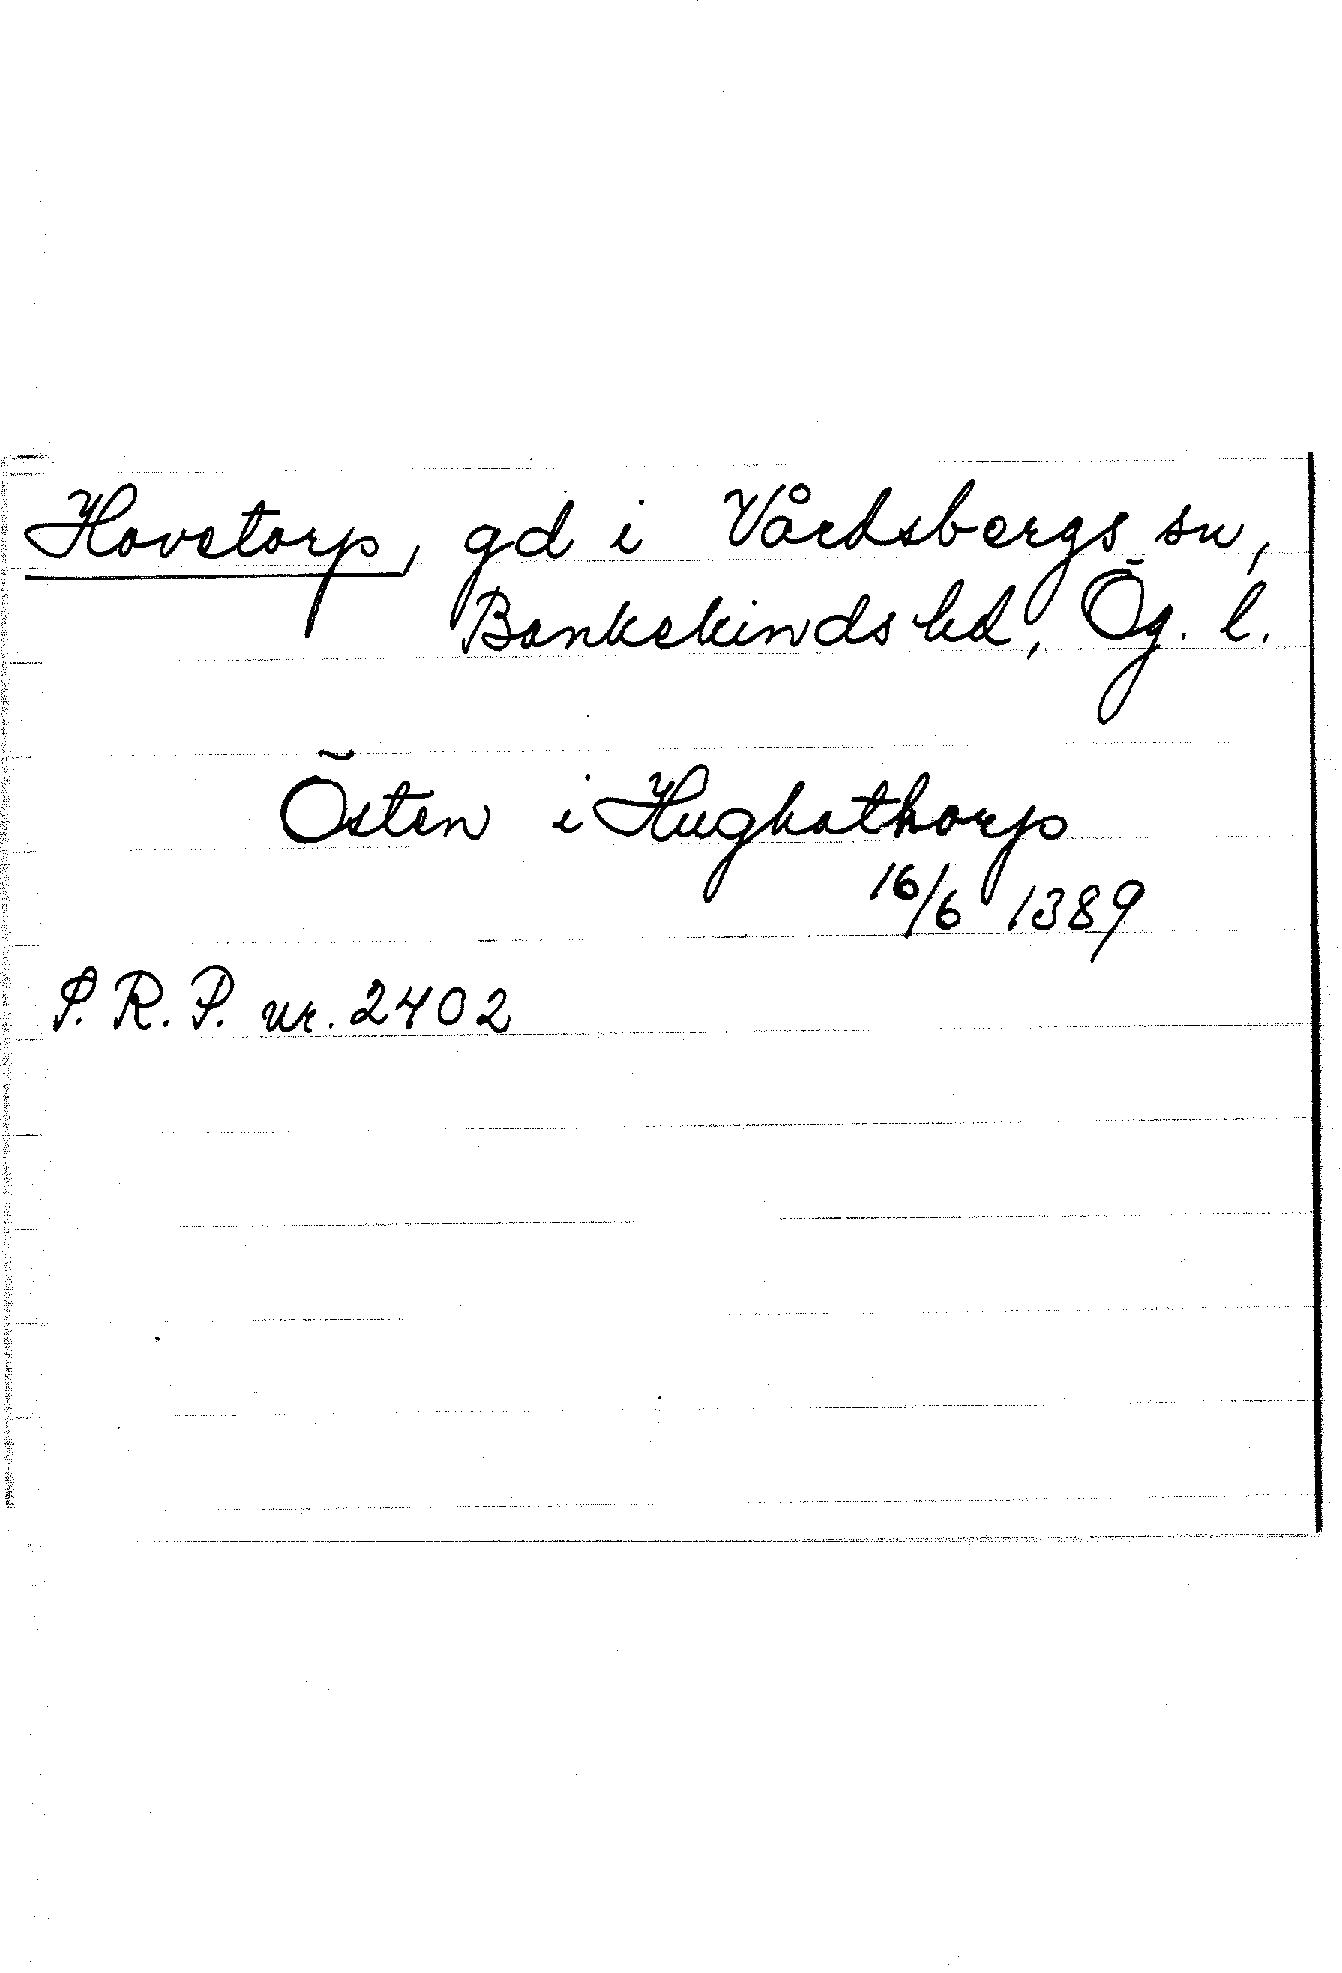 Hovetorp, gd i Vårdsbergs sn,
Bankekinds hd, Ög. l.
Östen i Hughathorp
16/6 1389
S. R. P. nr. 2402